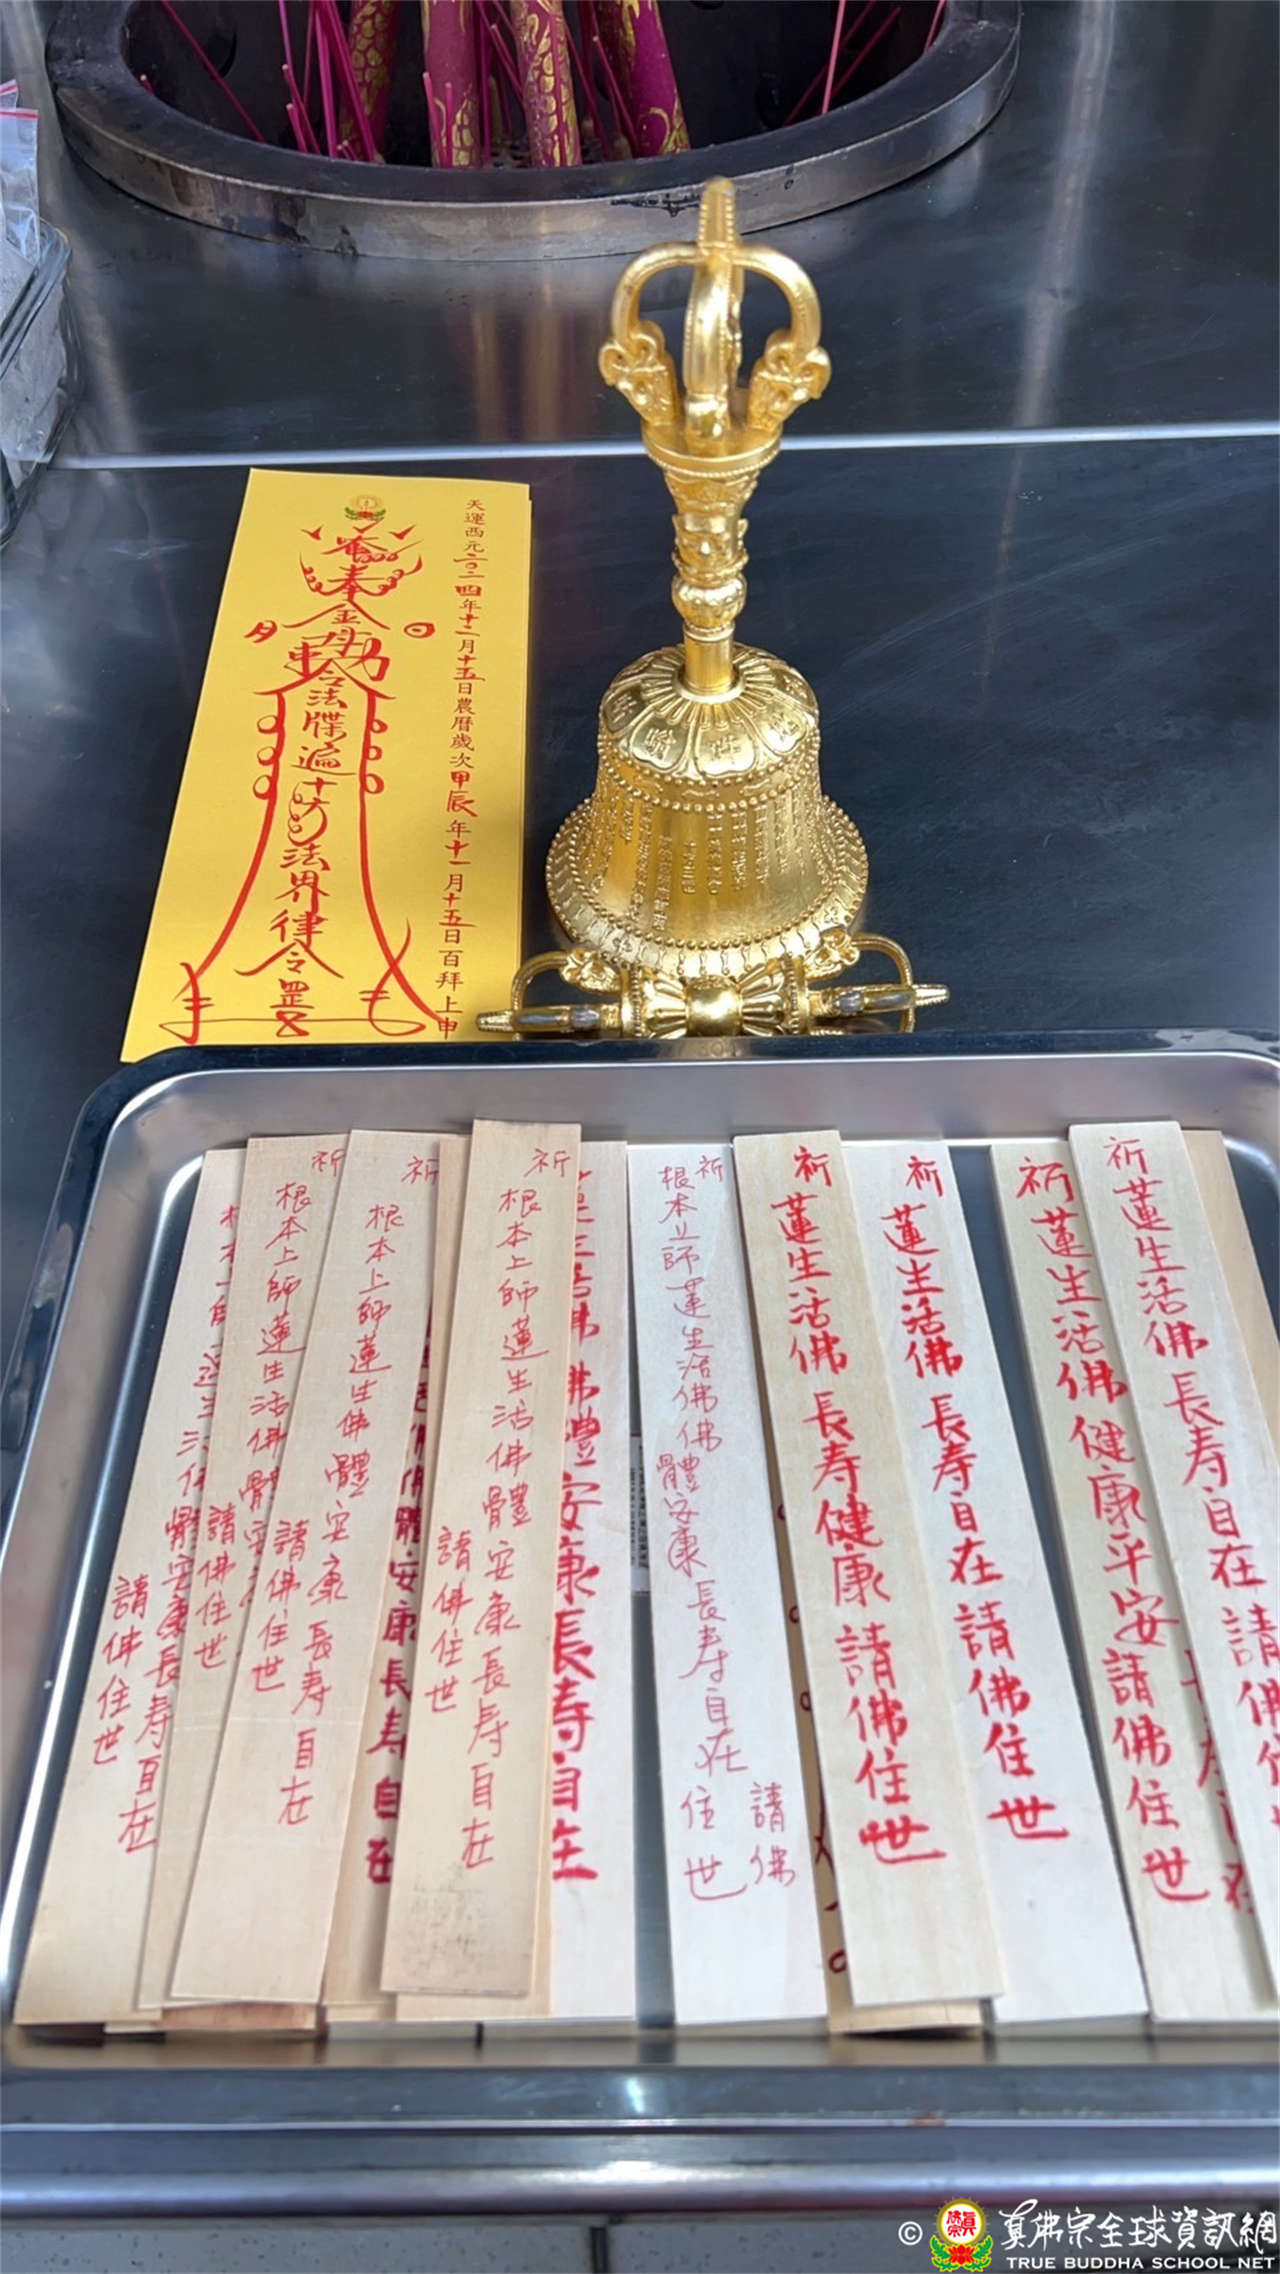 天運西元二〇二四年十二月十五日農曆歲次甲辰年十一月十五日百拜上申
奉
金母
勅令法牒遍十方法界律令罡
祈
根本上師蓮生活佛
請佛住世
祈
根本上師蓮生佛體安康長寿自在
請佛住世
祈
根本上師蓮生活佛體安康長寿自在
請佛住世
體安康長寿自在
請佛住世
佛體安康長寿自在
佛體安康長寿自在
祈
根本上師蓮生活佛佛體安康長寿自在
請佛
住世
祈
蓮生活佛長寿健康請佛住世
祈
蓮生活佛長寿自在請佛住世
祈
蓮生活佛健康平安請佛住世
祈
蓮生活佛長寿自在請佛住
© 真佛宗全球資訊網
TRUE BUDDHA SCHOOL NET